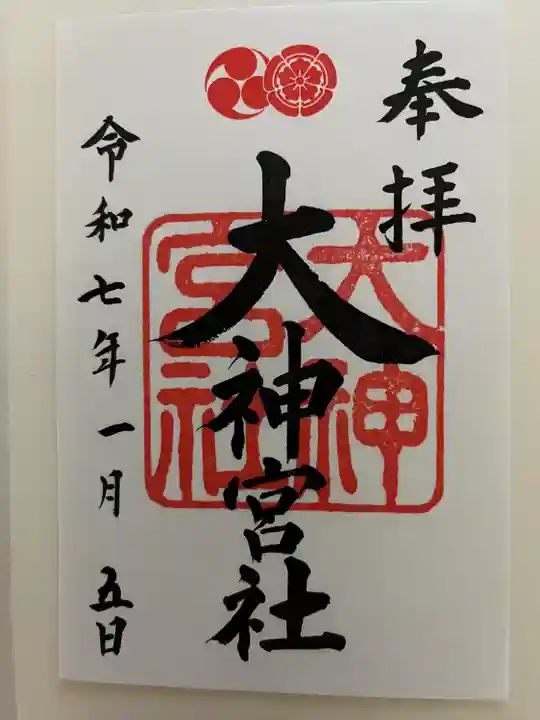 奉拝
大神宮社
大神
宮社
令和七年一月五日